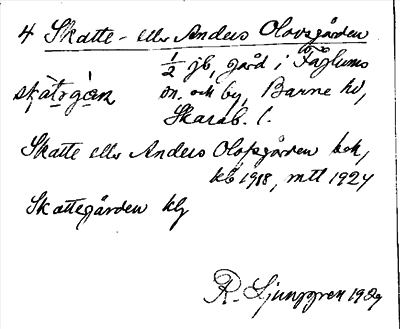 4 Skatte- eller Anders Olovsgården
1/2 jb, gård i Fåglums
skàtəgán sn. och by, Barne hd,
Skarab. l.
Skatte eller Anders Olofsgården bok,
kb 1918, mtl 1924
Skattegården kg
R. Ljunggren 1929